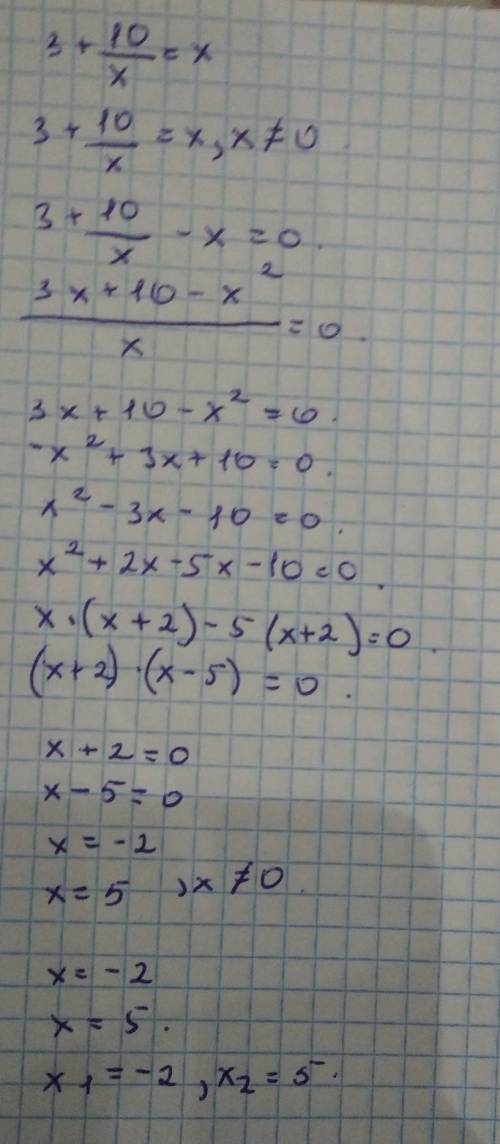 3 + 10/x = x
3 + 10/x = x, x ≠ 0.
3 + 10/x - x = 0.
(3x + 10 - x²)/x = 0.
3x + 10 - x² = 0.
-x² + 3x + 10 = 0.
x² - 3x - 10 = 0.
x² + 2x - 5x - 10 = 0.
x · (x + 2) - 5 (x + 2) = 0.
(x + 2) · (x - 5) = 0.
x + 2 = 0
x - 5 = 0
x = -2
x = 5 , x ≠ 0.
x = -2
x = 5.
x₁ = -2, x₂ = 5.